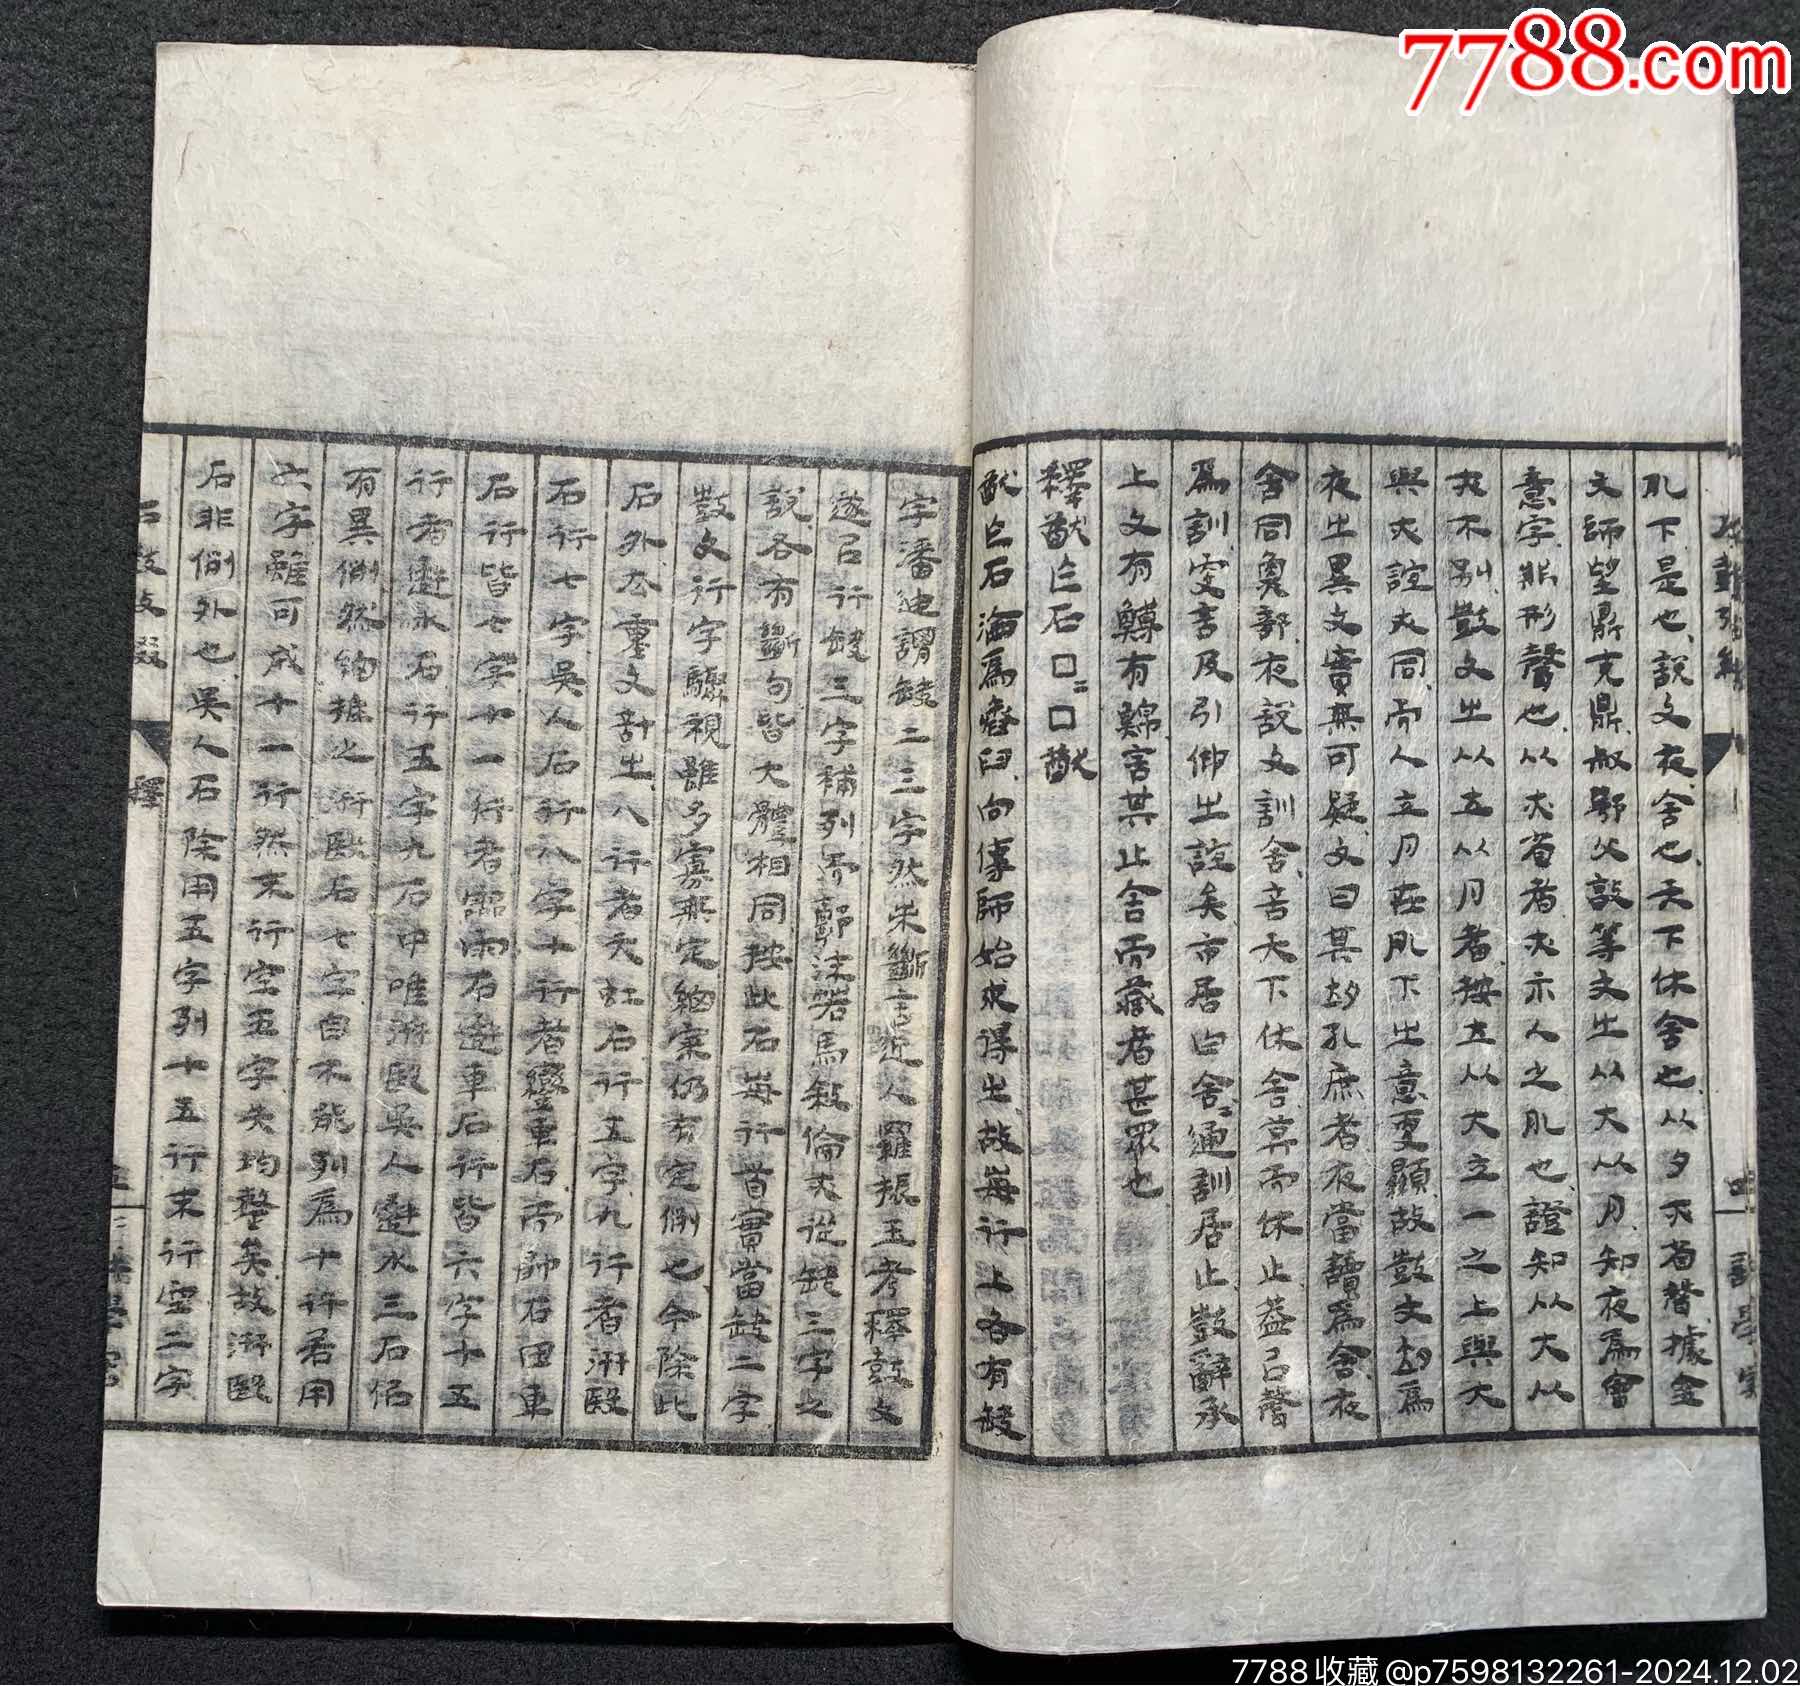 7788.com
肊下是也說文夜舍也天下休舍也从夕亦省聲據金
文師望鼎克鼎叔鄂父敦等文㞢从大从月知夜為會
意字非形聲也从夾省者夾亦人之肊也證知从大从
夾不別鼓文㞢从立从月者按立从大立一之上與大
與夾誼夾同而人立月在肊下㞢意更顯故鼓文為
夜㞢異文實無可疑文曰其孔庶者夜當讀為舍夜
舍同魚部夜說文訓舍舍言天下休舍葢㠯聲
為訓變言及引伸㞢誼矣市居曰舍舍通訓居止鼓辭承
上文有鱄有言其止舍而藏者甚眾也
釋猷㠯石囗囗猷
猷㠯石為臼向傳師始求得㞢故每行上各有缺
字潘迪謂缺二三字然未斷言近人羅振玉考釋鼓文
遂㠯行缺三字補列而郭沫若馬叙倫从缺三字之
說各有斷句皆大體相同按此石每行首實當缺二字
鼓文行字驟視雖多寡無定細案仍有定例也今除此
石外厺重文計㞢八行者天虹石行五字九行者汧殹
石行七字吳人石行八字十行者鑾車石而師石田車
石行皆七字十一行者霝雨石車石行皆六字十五
行者石行五字九石中唯汧殹吳人水三石佀
有異例然約據之汧殹石七字自不能列為十行若用
六字雖可成十一行然末行空五字失均整矣故汧殹
石非例外也吳人石除用五字列十五行末行空二字
石鼓文
釋
7788收藏@p7598132261-2024.12.02